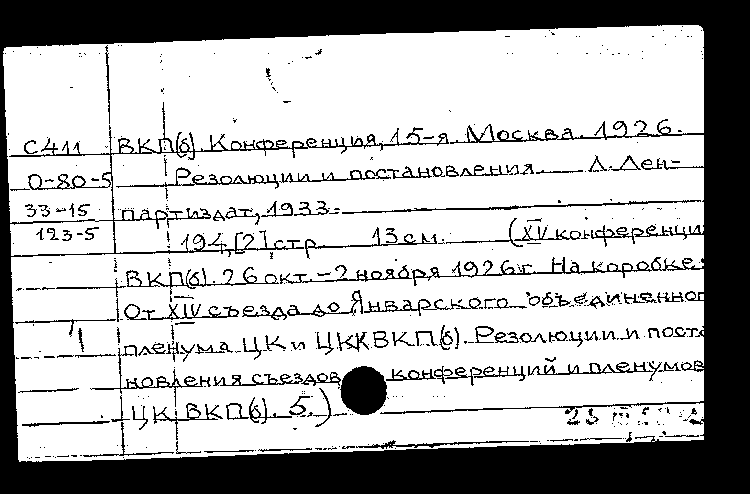 С411 ВКП(б). Конференция, 15-я. Москва. 1926.
0-80-5 Резолюции и постановления. Л. Лен-
33-15 партиздат, 1933.
123-5 194,[2] стр. 13 см. (XV конференци
ВКП(б). 26 окт.-2 ноября 1926 г. На коробке:
От XIV съезда до Январского объединенног
пленума ЦК и ЦКК ВКП(б). Резолюции и поста
новления съездов конференций и пленумов
ЦК ВКП(б). 5.)